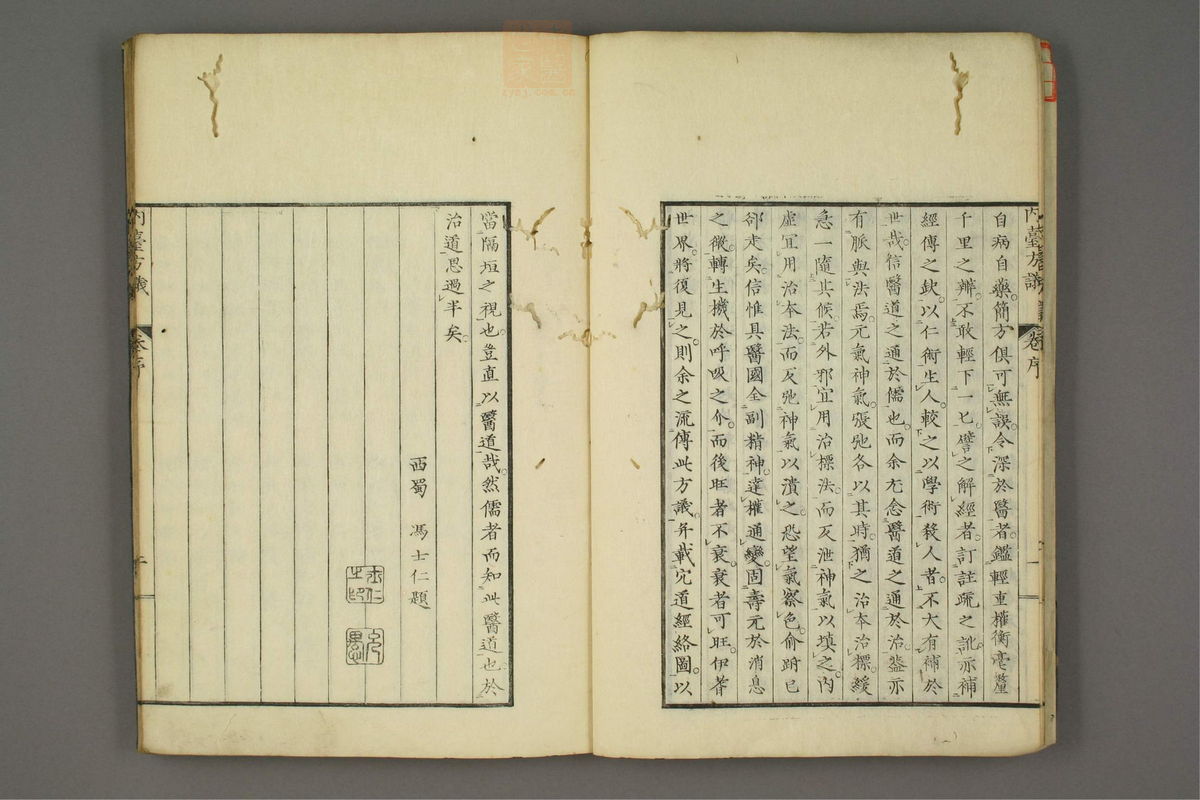 內臺方議 卷序
自病自藥簡方俱可無誤令深於醫者鑑輕重權衡毫釐
千里之辨不敢輕下一匕譬之解經者訂註疏之訛亦補
經傳之缺以仁術生人較之以學術殺人者不大有補於
世哉信醫道之通於儒也而余尢念醫道之通於治葢亦
有脈與法焉元氣神氣張弛各以其時猶之治本治標緩
急一隨其候若外邪宜用治標法而反泄神氣以填之內
虛宜用治本法而反弛神氣以潰之恐望氣察色俞跗已
郤走矣信惟具醫國全副精神達權通變固壽元於消息
之微轉生機於呼吸之介而後旺者不衰衰者可旺伊耆
世界將復見之則余之流傳此方議并載穴道經絡圖以
當隔垣之視也豈直以醫道哉然儒者而知此醫道也於
治道思過半矣
西蜀 馮士仁題
內臺方議 卷序